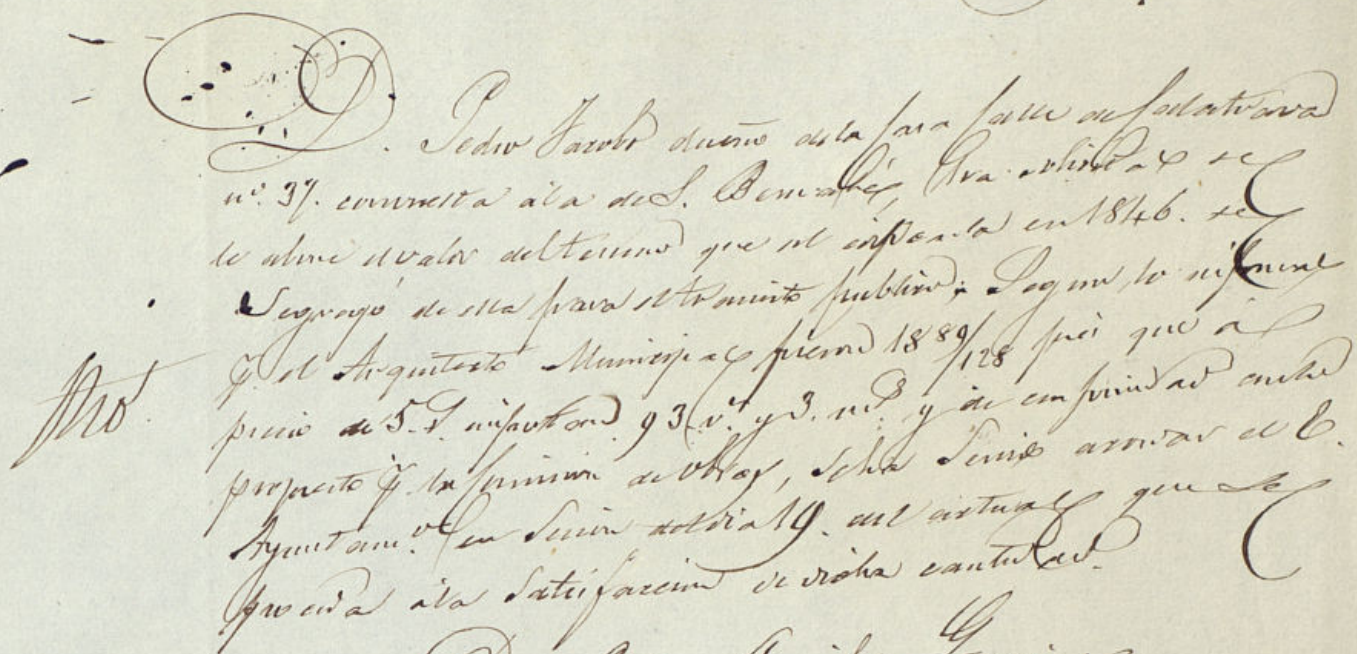 D. Pedro Jacobo dueño dela Casa Calle de Calatrava
nº. 37. con vuelta á la de S. Bernabé, ha solicitado se
le abone el valor del terreno que al espresada en 1846. se
segregó de ella para el transito publico; Segun lo informa
pr. el Arquitecto Municipal fueron 18 89/128 pies que á
precio de 5. rs. importan 93. rs. y 3. ms. y de conformidad con lo
propuesto pr. la Comision de Obras, se ha servido acordar el E.
Ayuntamto. en Sesion del dia 19. del actual que se
proceda á la satisfaccion de dicha cantidad.